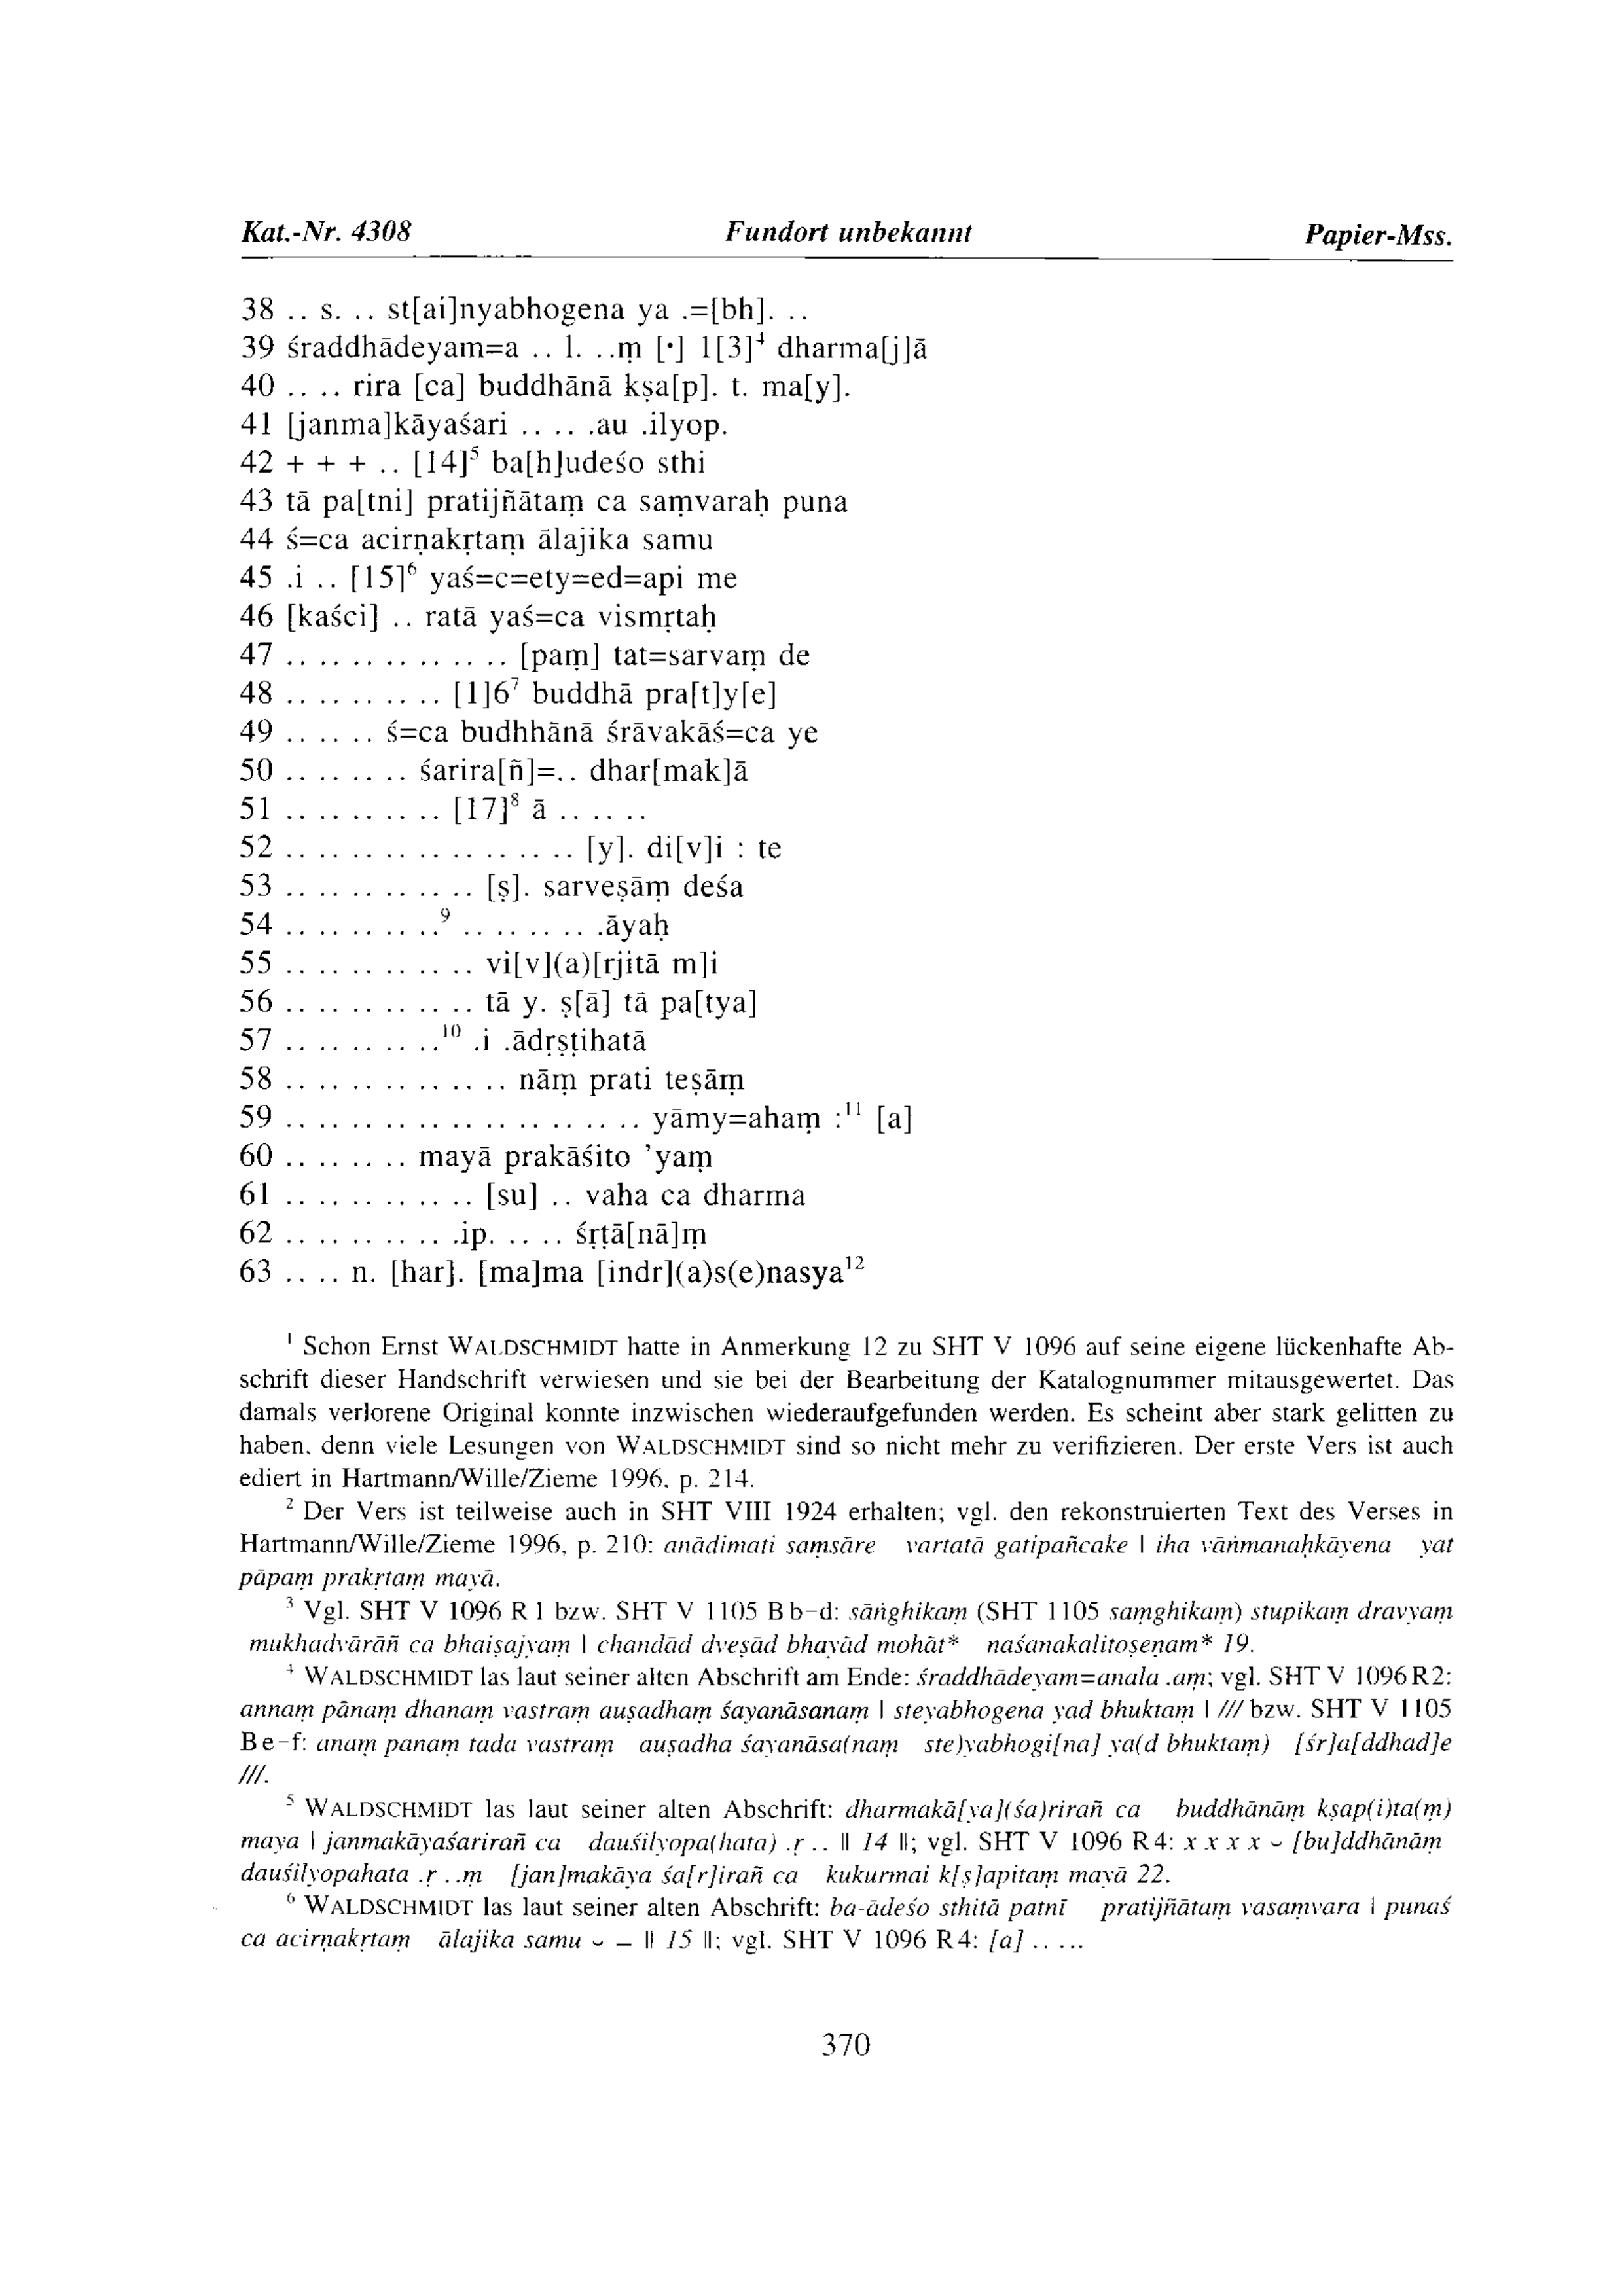 Kat.-Nr. 4308 Fundort unbekannt Papier-Mss.
38 .. s. .. st[ai]nyabhogena ya .=[bh]. ..
39 śraddhādeyam=a .. l. ..ṃ [·] 1[3]⁴ dharma[j]ā
40 .. .. rira [ca] buddhānā kṣa[p]. t. ma[y].
41 [janma]kāyaśari .. .. .au .ilyop.
42 + + + .. [14]⁵ ba[h]udeśo sthi
43 tā pa[tni] pratijñātaṃ ca saṃvaraḥ puna
44 ś=ca acirṇakṛtaṃ ālajika samu
45 .i .. [15]⁶ yaś=c=ety=ed=api me
46 [kaści] .. ratā yaś=ca vismṛtaḥ
47 .. .. .. .. .. .. .. [paṃ] tat=sarvaṃ de
48 .. .. .. .. .. [1]6⁷ buddhā pra[t]y[e]
49 .. .. .. ś=ca budhhānā śrāvakāś=ca ye
50 .. .. .. .. śarira[ñ]=.. dhar[mak]ā
51 .. .. .. .. .. [17]⁸ ā .. .. ..
52 .. .. .. .. .. .. .. .. .. [y]. di[v]i : te
53 .. .. .. .. .. .. [ṣ]. sarveṣāṃ deśa
54 .. .. .. .. ..⁹ .. .. .. .. .āyaḥ
55 .. .. .. .. .. .. vi[v](a)[rjitā m]i
56 .. .. .. .. .. .. tā y. ṣ[ā] tā pa[tya]
57 .. .. .. .. ..¹⁰ .i .ādṛṣṭihatā
58 .. .. .. .. .. .. .. nāṃ prati teṣāṃ
59 .. .. .. .. .. .. .. .. .. .. .. yāmy=ahaṃ :¹¹ [a]
60 .. .. .. .. mayā prakāśito ’yaṃ
61 .. .. .. .. .. .. [su] .. vaha ca dharma
62 .. .. .. .. .. .ip. .. .. śṛṭā[nā]ṃ
63 .. .. n. [har]. [ma]ma [indr](a)s(e)nasya¹²
¹ Schon Ernst WALDSCHMIDT hatte in Anmerkung 12 zu SHT V 1096 auf seine eigene lückenhafte Ab-
schrift dieser Handschrift verwiesen und sie bei der Bearbeitung der Katalognummer mitausgewertet. Das
damals verlorene Original konnte inzwischen wiederaufgefunden werden. Es scheint aber stark gelitten zu
haben, denn viele Lesungen von WALDSCHMIDT sind so nicht mehr zu verifizieren. Der erste Vers ist auch
ediert in Hartmann/Wille/Zieme 1996, p. 214.
² Der Vers ist teilweise auch in SHT VIII 1924 erhalten; vgl. den rekonstruierten Text des Verses in
Hartmann/Wille/Zieme 1996, p. 210: anādimati saṃsāre vartatā gatipañcake | iha vāṅmanaḥkāyena yat
pāpaṃ prakṛtaṃ mayā.
³ Vgl. SHT V 1096 R 1 bzw. SHT V 1105 B b–d: sāṅghikaṃ (SHT 1105 saṃghikaṃ) stupikaṃ dravyaṃ
mukhadvārāñ ca bhaiṣajyaṃ | chandād dveṣād bhayād mohāt* naśanakalitoṣeṇam* 19.
⁴ WALDSCHMIDT las laut seiner alten Abschrift am Ende: śraddhādeyam=anala .aṃ; vgl. SHT V 1096 R 2:
annaṃ pānaṃ dhanaṃ vastraṃ auṣadhaṃ śayanāsanaṃ | steyabhogena yad bhuktaṃ | /// bzw. SHT V 1105
B e–f: anaṃ panaṃ tada vastraṃ auṣadha śayanāsa(naṃ ste)yabhogi[na] ya(d bhuktaṃ) [śr]a[ddhad]e
///.
⁵ WALDSCHMIDT las laut seiner alten Abschrift: dharmakā[ya](śa)rirañ ca buddhānāṃ kṣap(i)ta(ṃ)
maya | janmakāyaśarirañ ca dauśilyopa(hata) .ṛ .. || 14 ||; vgl. SHT V 1096 R 4: x x x x ⏑ [bu]ddhānāṃ
dauśilyopahata .ṛ ..ṃ [jan]makāya śa[r]irañ ca kukurmai k[ṣ]apitaṃ mayā 22.
⁶ WALDSCHMIDT las laut seiner alten Abschrift: ba-ādeśo sthitā patnī pratijñātaṃ vasaṃvara | punaś
ca acirṇakṛtaṃ ālajika samu ⏑ – || 15 ||; vgl. SHT V 1096 R 4: [a] .. ...
370